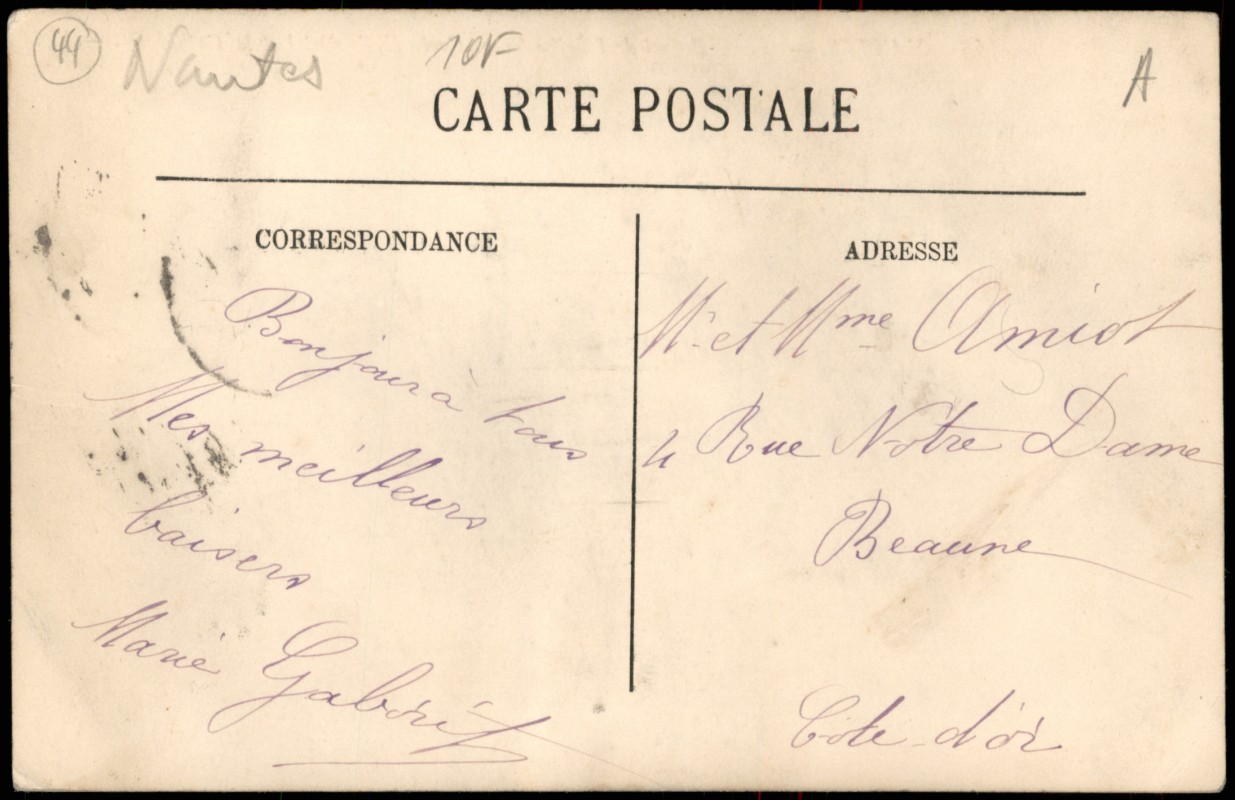 44 Nantes 10F A
CARTE POSTALE
CORRESPONDANCE
Bonjour à tous
Mes meilleurs
baisers
Marie Gaborit
ADRESSE
Mr et Mme Amiot
4 Rue Notre Dame
Beaune
Côte-d'or